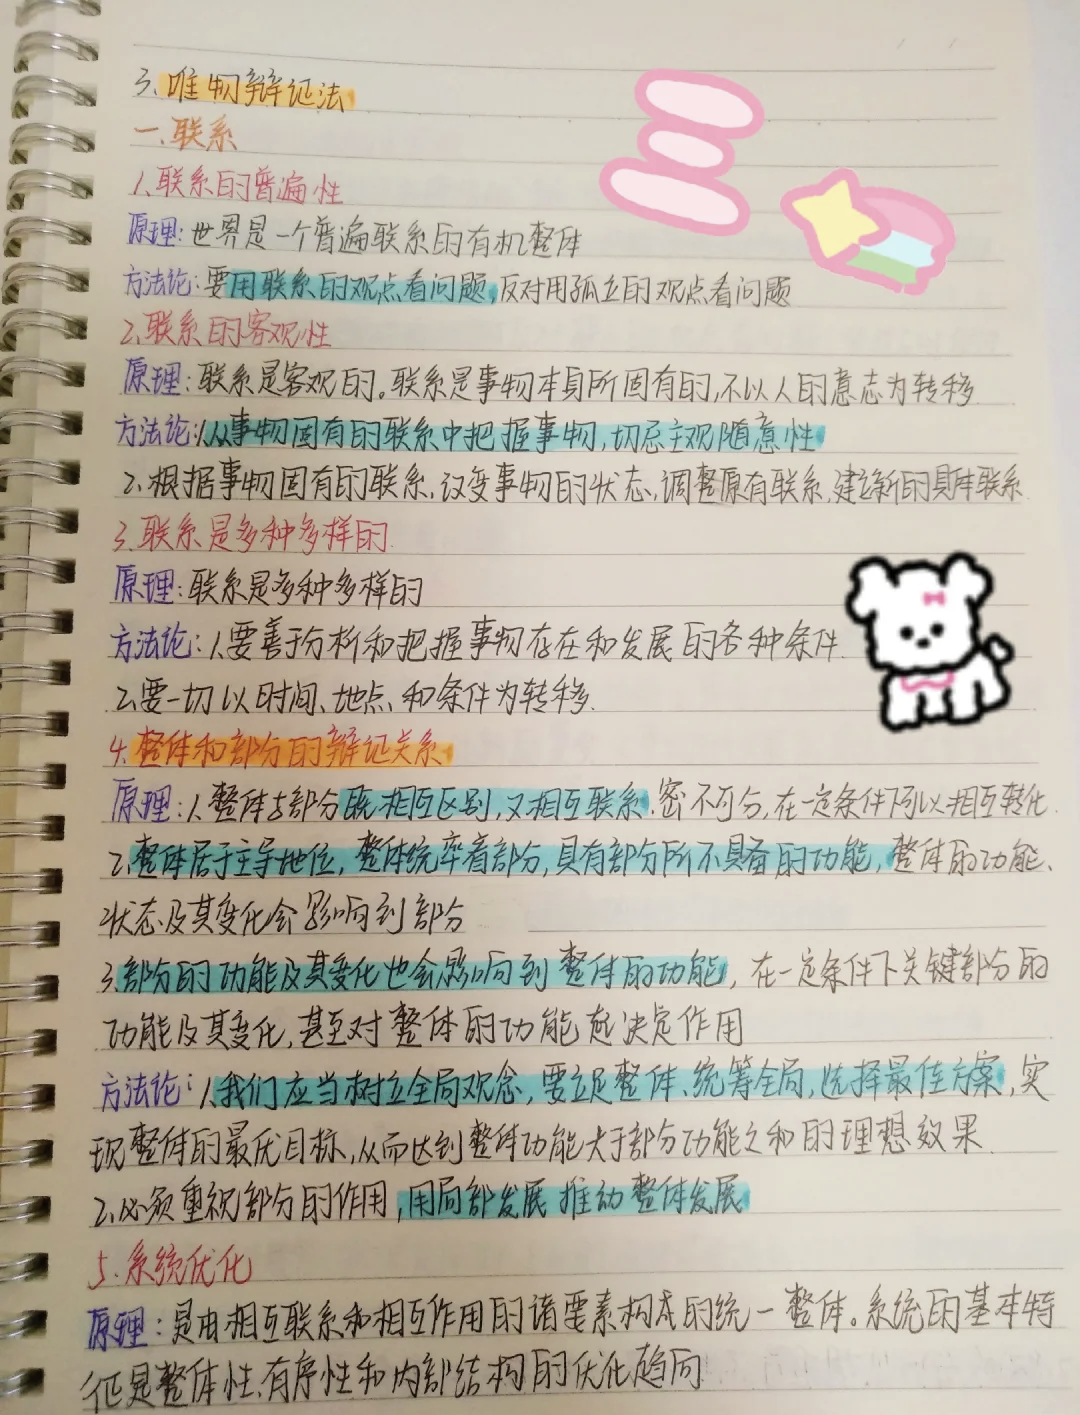 3. 唯物辩证法
一. 联系
1. 联系的普遍性
原理: 世界是一个普遍联系的有机整体
方法论: 要用联系的观点看问题, 反对用孤立的观点看问题
2. 联系的客观性
原理: 联系是客观的。联系是事物本身所固有的, 不以人的意志为转移.
方法论: 1. 从事物固有的联系中把握事物, 切忌主观随意性
2. 根据事物固有的联系, 改变事物的状态, 调整原有联系, 建立新的具体联系.
3. 联系是多种多样的.
原理: 联系是多种多样的
方法论: 1. 要善于分析和把握事物存在和发展的各种条件.
2. 要一切以时间、地点、和条件为转移.
4. 整体和部分的辩证关系
原理: 1. 整体与部分既相互区别, 又相互联系. 密不可分, 在一定条件下可以相互转化.
2. 整体居于主导地位, 整体统率着部分, 具有部分所不具备的功能, 整体的功能、
状态及其变化会影响到部分
3. 部分的功能及其变化也会影响到整体的功能, 在一定条件下关键部分的
功能及其变化, 甚至对整体的功能起决定作用
方法论: 1. 我们应当树立全局观念, 要立足整体、统筹全局, 选择最佳方案, 实
现整体的最优目标, 从而达到整体功能大于部分功能之和的理想效果.
2. 必须重视部分的作用, 用局部发展推动整体发展
5. 系统优化
原理: 是由相互联系和相互作用的诸要素构成的统一整体。系统的基本特
征是整体性、有序性和内部结构的优化趋向